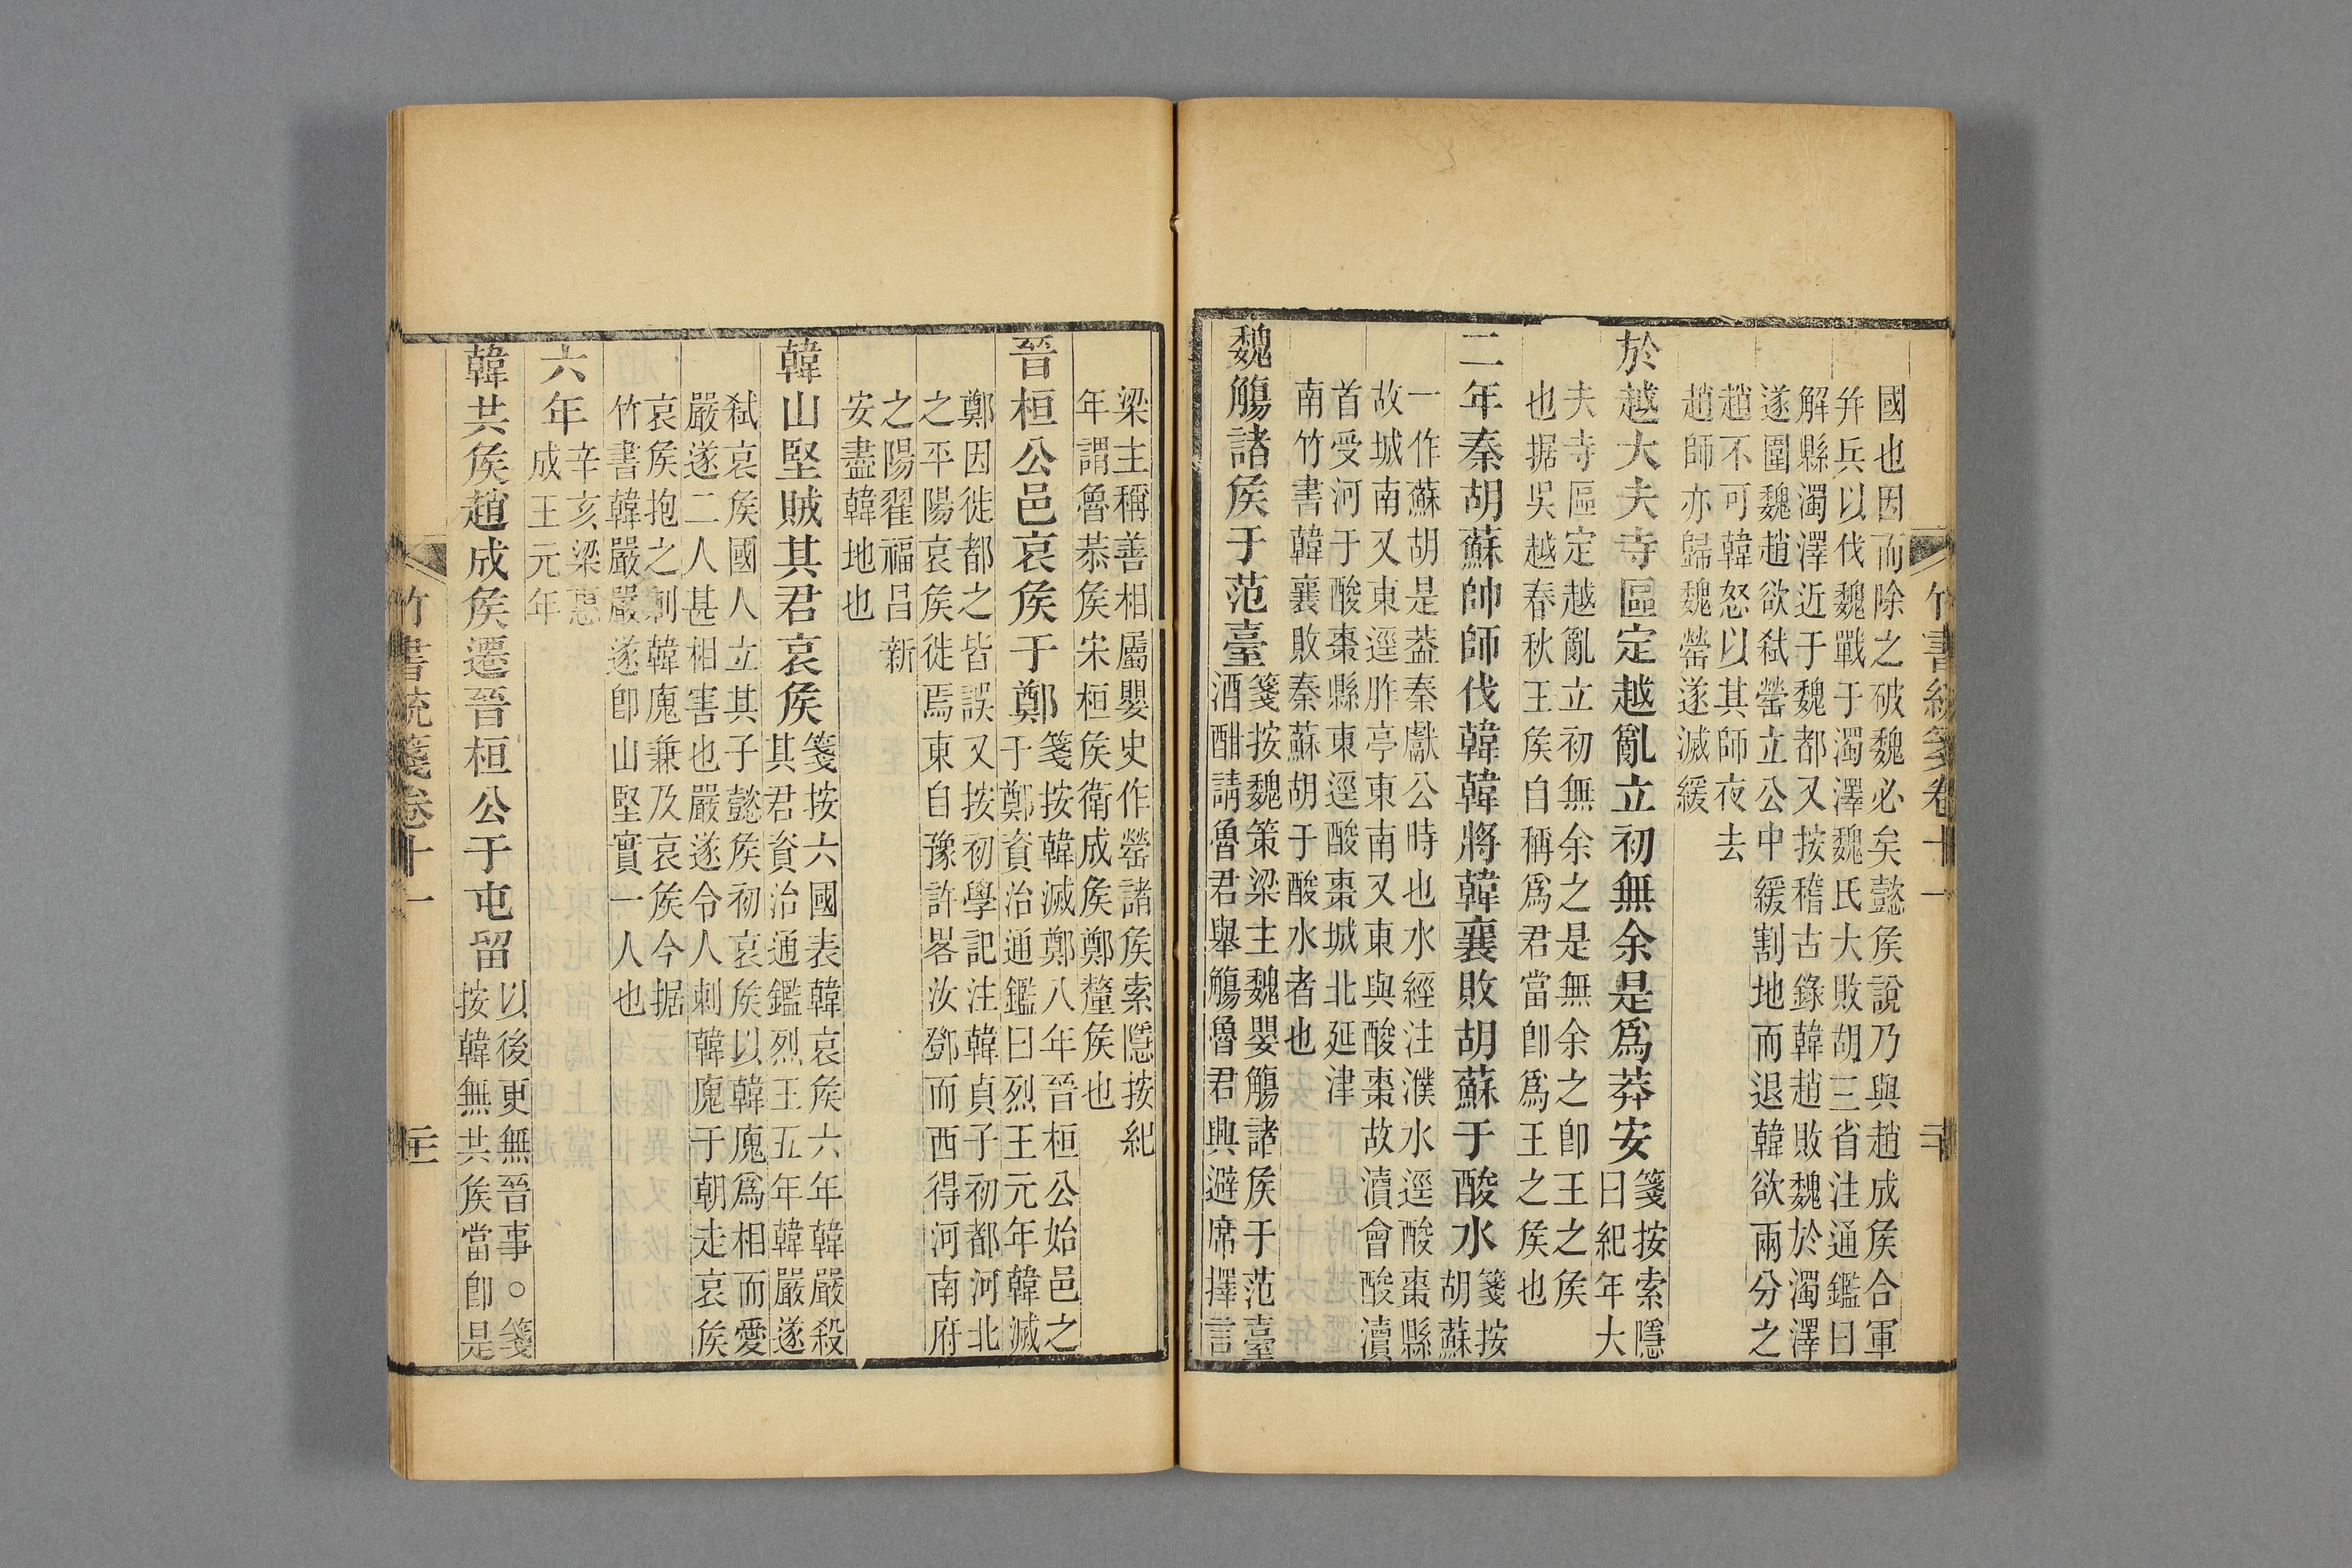 竹書統箋卷十一
二十
國也因而除之破魏必矣懿矦說乃與趙成矦合軍
幷兵以伐魏戰于濁澤魏氏大敗胡三省注通鑑曰
解縣濁澤近于魏都又按稽古錄韓趙敗魏於濁澤
遂圍魏趙欲弑罃立公中緩割地而退韓欲兩分之
趙不可韓怒以其師夜去
趙師亦歸魏罃遂滅緩
於越大夫寺區定越亂立初無余是爲莽安
箋按索隱
曰紀年大
夫寺區定越亂立初無余之是無余之卽王之矦
也据吳越春秋王矦自稱爲君當卽爲王之矦也
二年秦胡蘇帥師伐韓韓將韓襄敗胡蘇于酸水
箋按
胡蘇
一作蘇胡是葢秦獻公時也水經注濮水逕酸棗縣
故城南又東逕胙亭東南又東與酸棗故瀆會酸瀆
首受河于酸棗縣東逕酸棗城北延津
南竹書韓襄敗秦蘇胡于酸水者也
魏觴諸矦于范臺
箋按魏策梁主魏嬰觴諸矦于范臺
酒酣請魯君舉觴魯君興避席擇言
梁主稱善相屬嬰史作罃諸矦索隱按紀
年謂魯恭矦宋桓矦衛成矦鄭釐矦也
晉桓公邑哀矦于鄭
箋按韓滅鄭八年晉桓公始邑之
于鄭資治通鑑曰烈王元年韓滅
鄭因徙都之皆誤又按初學記注韓貞子初都河北
之平陽哀矦徙焉東自豫許畧汝鄧而西得河南府
之陽翟福昌新
安盡韓地也
韓山堅賊其君哀矦
箋按六國表韓哀矦六年韓嚴殺
其君資治通鑑烈王五年韓嚴遂
弑哀矦國人立其子懿矦初哀矦以韓廆爲相而愛
嚴遂二人甚相害也嚴遂令人刺韓廆于朝走哀矦
哀矦抱之刺韓廆兼及哀矦今据
竹書韓嚴嚴遂卽山堅實一人也
六年
辛亥梁惠
成王元年
韓共矦趙成矦遷晉桓公于屯留
以後更無晉事○箋
按韓無共矦當卽是
竹書統箋卷十一